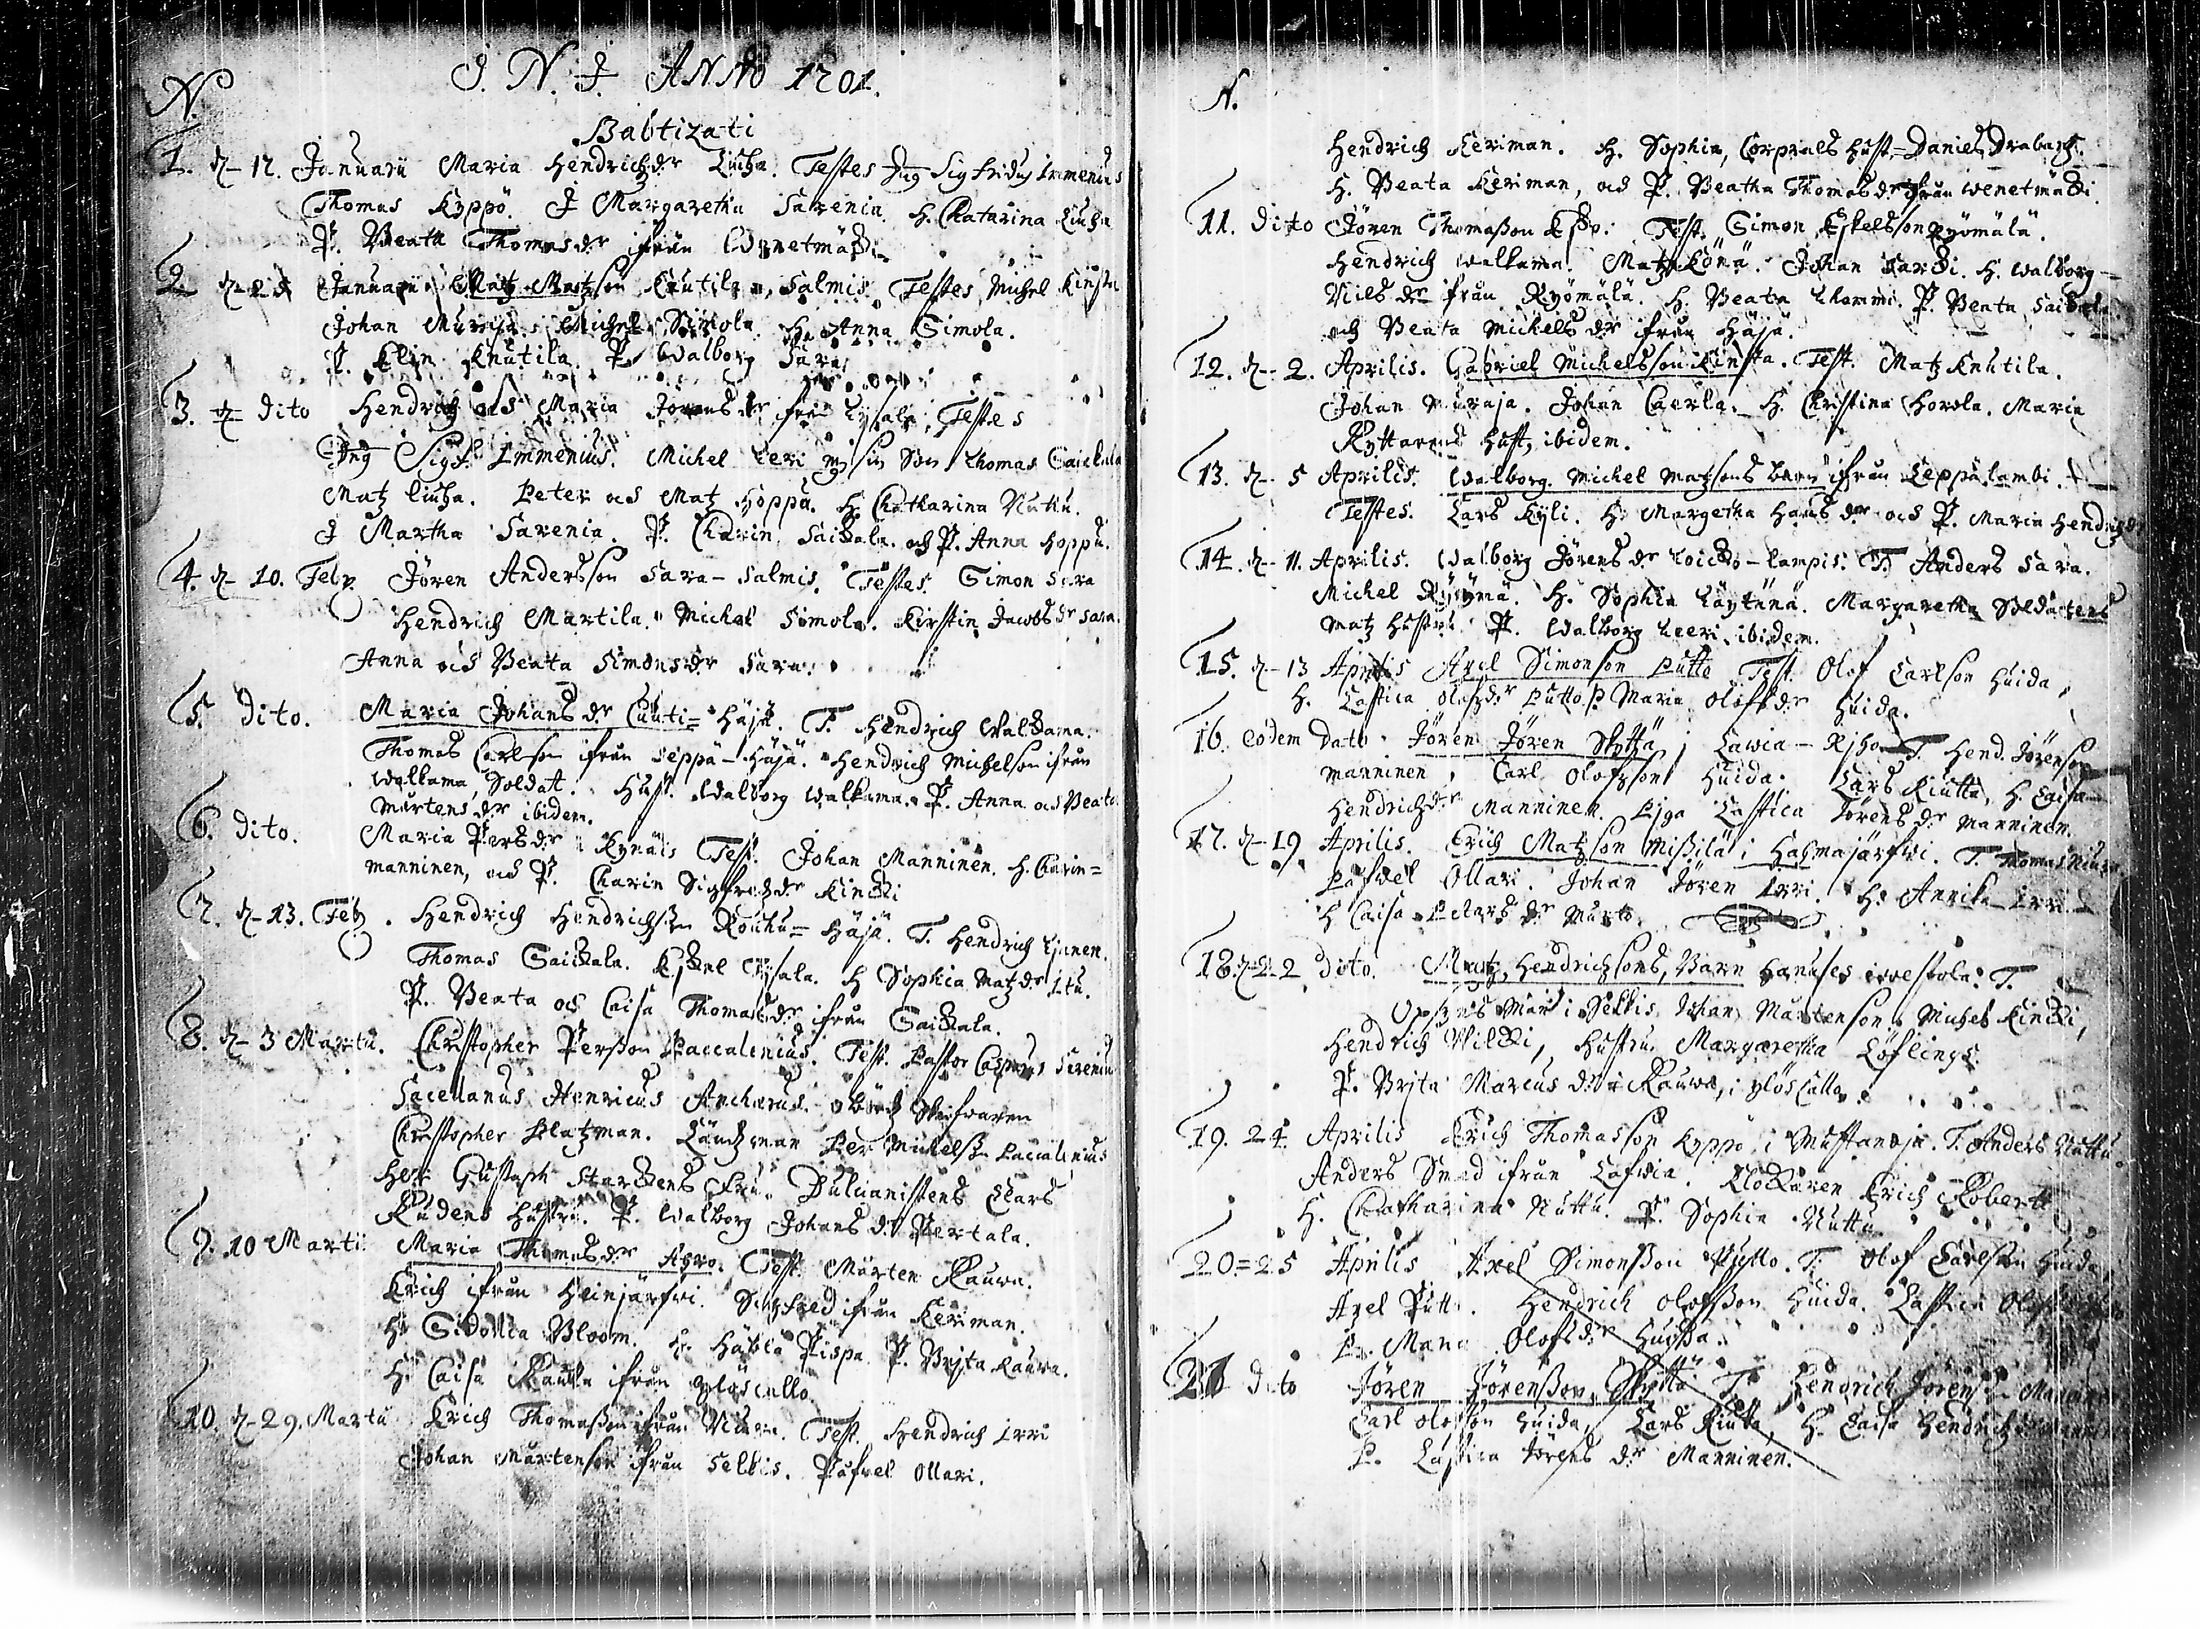 J. N. J. ANNO 1701.
N.
Babtizati
1. d. 12. Januarii Maria Hendrichsdr Liuha. Testes Ing Sigfridus Immenius
Thomas Kyppö. J Margaretha Sarenia. H. Chatarina Liuha
P. Beata Thomasdr ifrån Wenetmäki
2. Januarii Matz Matzson Knutila, Salmis. Testes, Michel Kinsta
Johan Muraja. Michel Simola. H. Anna Simola.
P. Elin Knutila. P. Walborg Sara
3. dito Hendrich och Maria Jörensdr från Lysala. Testes
Ing Sigf. Immenius. Michel Leri sin Son Thomas Saickala
Matz Liuha. Peter och Matz Hoppu. H. Chatharina Nuttu.
J Martha Sarenia. P. Charin Saickala. och P. Anna Hoppu.
4. d. 10. Febr. Jören Andersson Sara-Salmis. Testes. Simon Sara
Hendrich Martila. Michel Simola. Kirstin Jacobsdr Sara.
Anna och Beata Simonsdr Sara.
5. dito. Maria Johansdr Cuuti= Häjä. T. Hendrich Walkama.
Thomas Carlson ifrån Seppä-Häjä. Hendrich Michelson ifrån
Walkama, Soldat. Hust. Walborg Walkama. P. Anna och Beata
Mårtensdr ibidem.
6. dito. Maria Persdr Kynäis Test. Johan Manninen. H. Charin=
manninen, och P. Charin Sigfredzdr Kincki
7. d. 13. Feb. Hendrich Hendrichsson Rouhu= Häjä. T. Hendrich
Thomas Saickala. Eskel Lysala. H Sophia Matzdr
P. Beata och Caisa Thomasdr ifrån Saickala.
8. d. 3 Martii. Christopher Persson Paccalenius. Test. Pastor Casperus Serenius
Sacellanus Henricus Ancherus. Skrifwaren
Christopher Platzman. Länsman Per Michelss. Paccalenius
Herr Gustaph Starckens Fru. Lars
Rudens hustru. P. Walborg Johansdr Pertala.
9. 10 Martii Maria Thomasdr Ahro. Test. Mårten Rauwa.
Erich ifrån Heinjärfwi. Sigfred ifrån Keriman.
H. Sidonia Bloom. H. Häbla Pispa. P. Brita Rauwa.
H. Caisa Raukka ifrån Ylöscallo.
10. d. 29. Martii Erich Thomasson ifrån. Test. Hendrich Erri
Johan Mårtenson ifrån Selkis. Påfwel Ollari.
N.
Hendrich Keriman. H. Sophia, Corprals hust. Daniels
H. Beata Keriman, och P. Beatha Thomasdr ifrån Wenetmäcki.
11. Dito Jören Thomasson. Test. Simon Eskelsson Ryömälä.
Hendrich Walkama. Matz Könä. Johan Sarcki. H. Walborg
Nilsdr från Ryömälä. H. Beata. P. Beata Saickala
och Beata Michelsdr ifrån Häjä.
12. d. 2. Aprilis. Gabriel Michelsson Kinsta. Test. Matz Knutila.
Johan Muraja. Johan Caerla. H. Christina Horola. Maria
Ryttarens hust. ibidem.
13. d. 5 Aprilis. Walborg. Michel Matzsons barn ifrån Leppälambi.
Testes. Lars Kyli. H. Margetha Hansdr och P. Maria Hendrichsdr
14. d. 11. Aprilis. Walborg Jörensdr Loicko-lampis. T. Anders Sara.
Michel Ryymä. H. Sophia Läyttnä. Margaretha Soldatens
Matz hustru. P. Walborg Leeri ibidem.
15. d. 13 Aprilis Axel Simonson Putto Test. Olof Carlson Huida,
H. Lastica Olofzdr Putto. P. Maria Olofsdr Huida.
16. eodem Dato Jören Jören Skyttä, i Lawia-Rjho. T. Hend. Jörenson
Manninen, Carl Olofzson Huida. Lars Riutta, H. Caisa
Hendrichsdr Manninen. Piga Lastica Jörensdr Manninen.
17. d. 19 Aprilis. Erich Matzson Missilä, i Hahmajärfwi. T. Thomas
Påfwel Ollari. Johan Jören Erri. H. Annika Erri.
H Caisa Petarsdr Murto.
18. d. 22 Dito. Matz, Hendrichsons, Barn Hanuses iwespola. T.
Man i Selkis. Johan Mårtenson. Michel Kincki,
Hendrich Wilcki, Hustru Margaretha Löflings.
P. Brita Marcusdr Rauwa, i Ylöscallo.
19. 24. Aprilis Erich Thomasson Kyppö i Mustanoja. T. Anders Nuttu.
Anders Smed ifrån Lafwia. Klockaren Erich Robert
H. Chatharina Nuttu. P. Sophia Nuttu
20=25 Aprilis Axel Simonsson Putto. T. Olof Carlsson Huida
Axel Putto. Hendrich Olofsson Huida. Lastica
P. Maria Olofsdr Huida.
21 Dito Jören Jörensson Skyttä T. Hendrich Jörenss. Manninen
Carl Olofsson Huida, Lars Riutta, H. Caisa Hendrichsdr
P. Lastica Jörensdr Manninen.